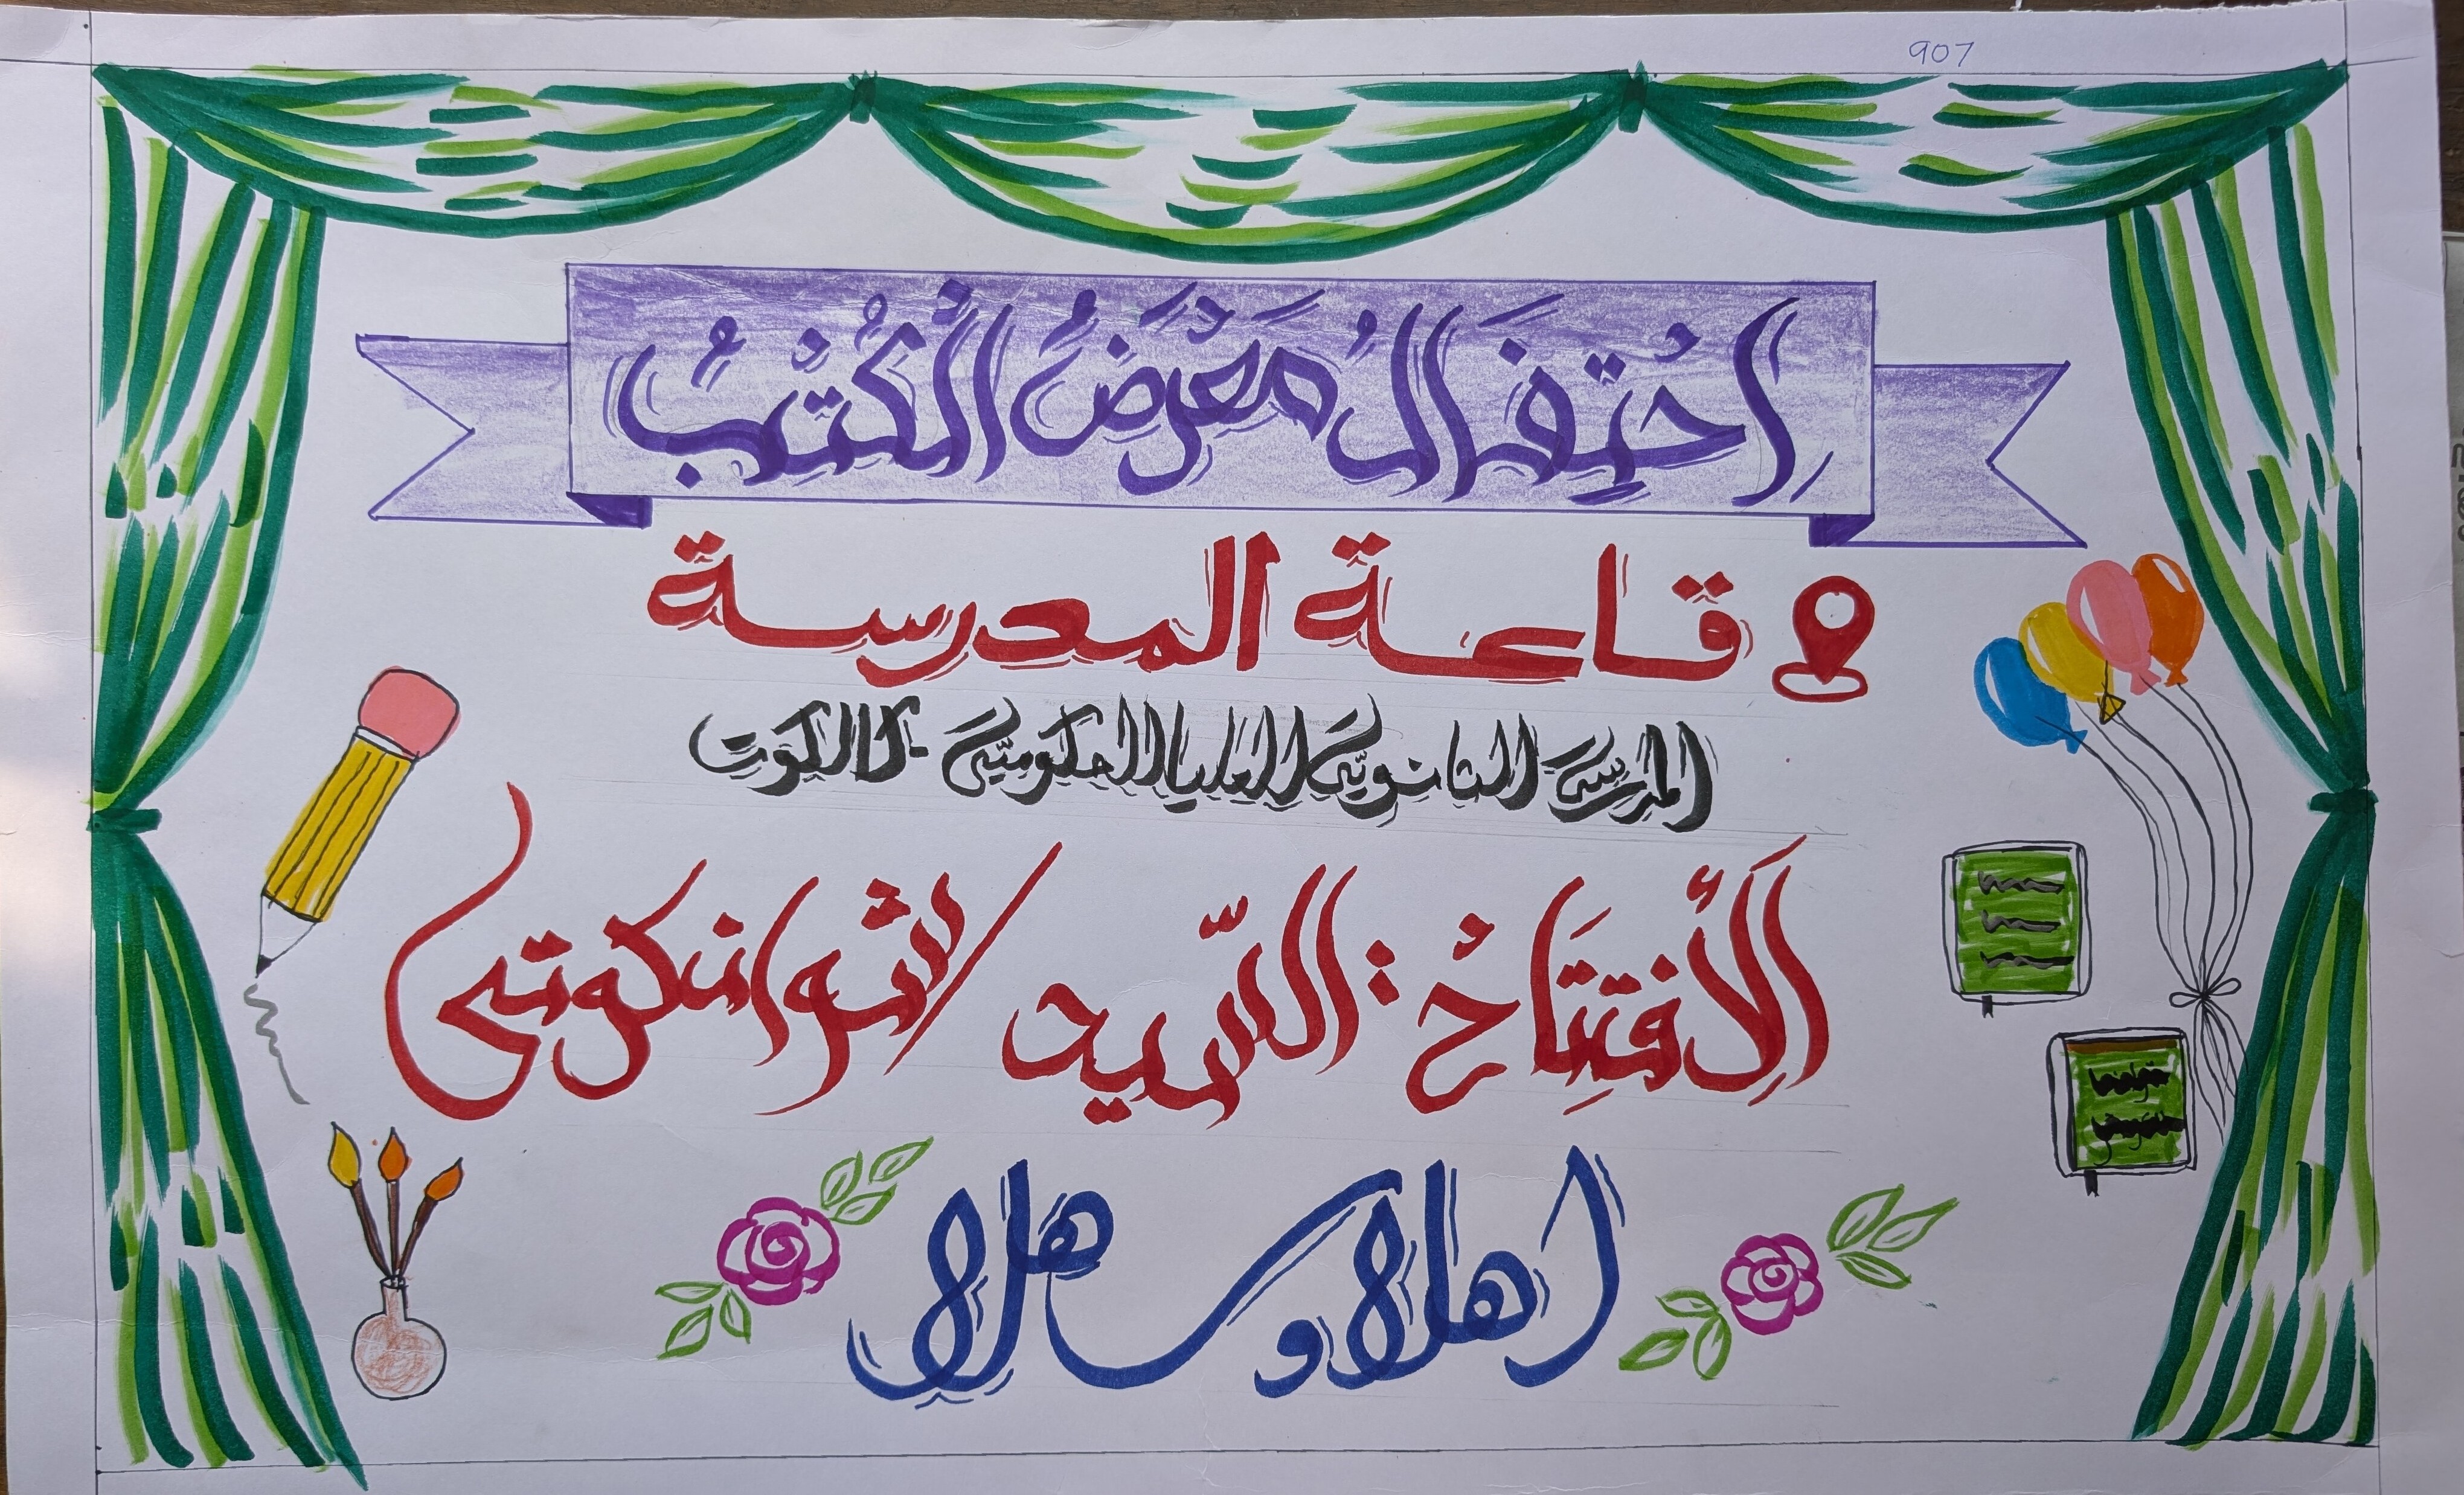 907
اِحْتِفَالُ مَعْرَضُ الْكُتُبُ
قاعة المدرسة
المدرسة الثانويّة العليا الحكوميّة - كاليكوت
اَلْأِفْتِتَاحُ : السّيد / شوانكوتي
اهلا وسهلا